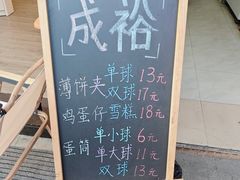 成裕
薄饼夹 单球 13元
双球 17元
鸡蛋仔雪糕 18元
蛋筒 单小球 6元
单大球 11元
双球 13元